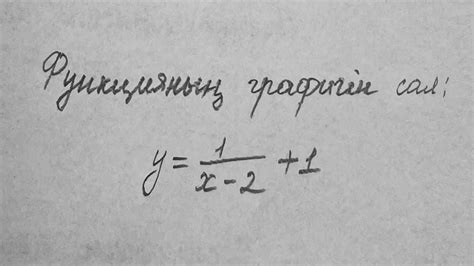 Функцияның графигін сал:
y = 1/(x-2) + 1